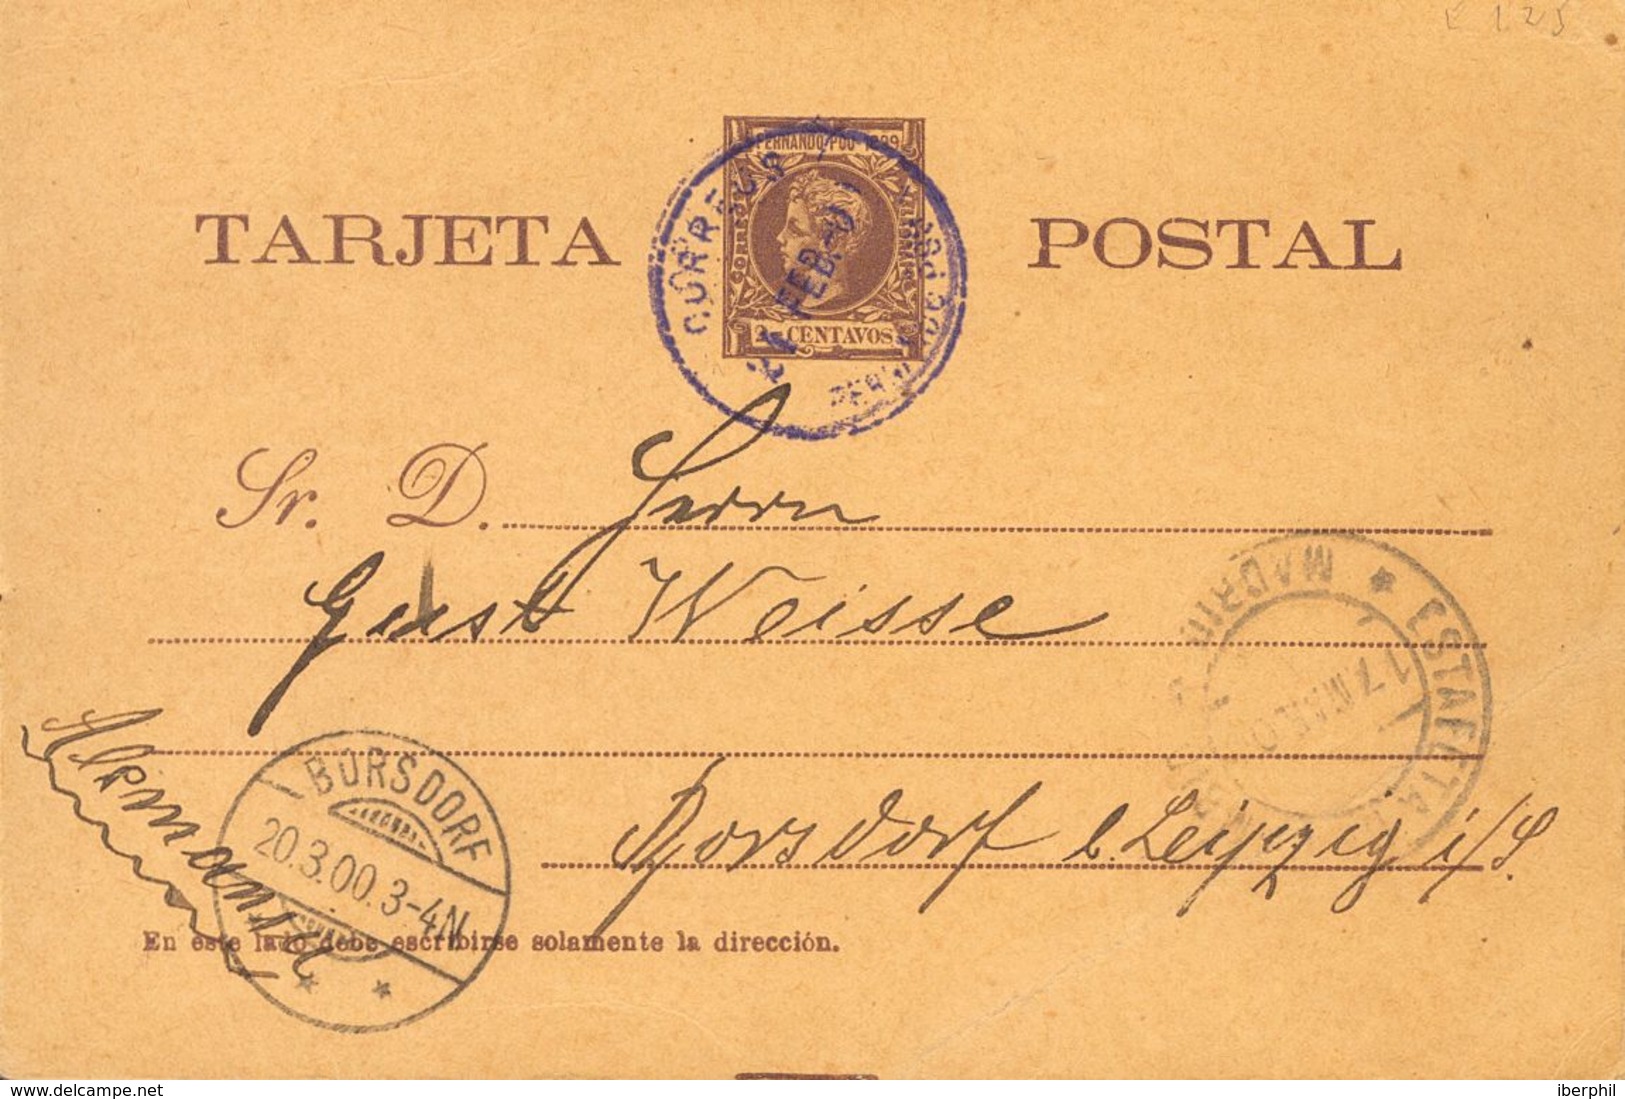 E 125
FERNANDO POO 1899
CORREOS
2 CENTAVOS
TARJETA POSTAL
CORREOS
FEB.
Sr. D. Herrn
Gust Weisse
MADRID * ESTAFETA
17 MAR.00
Alemania
BORSDORF
20.3.00.3-4N
* *
Borsdorf b. Leipzig i/S.
En este lado debe escribirse solamente la dirección.
delcampe.net
iberphil